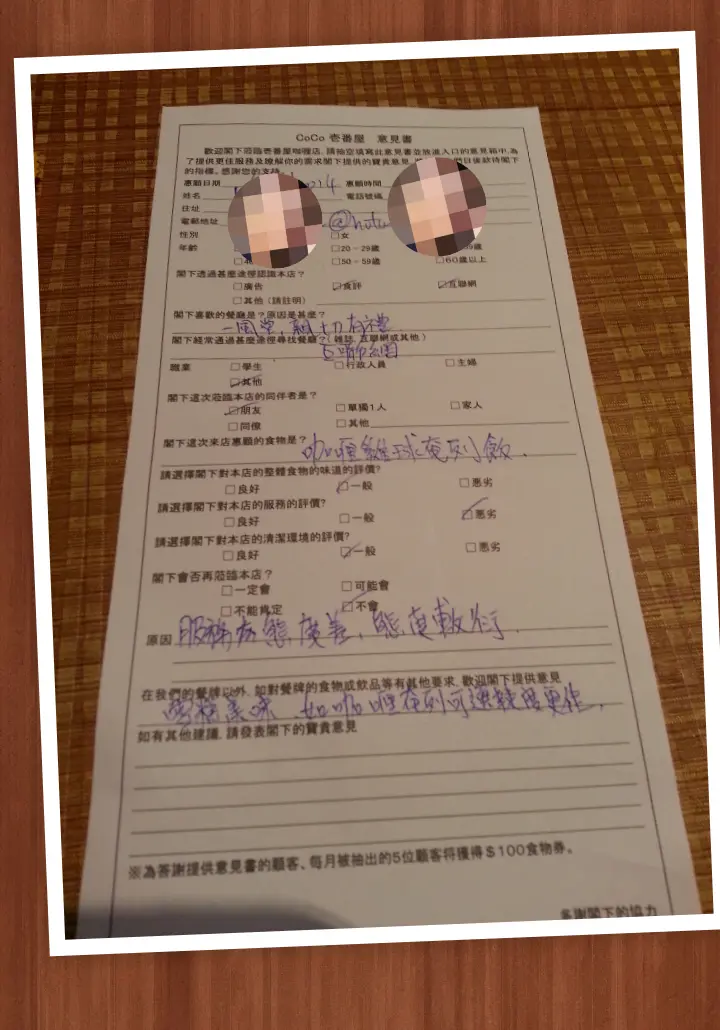 CoCo 壱番屋 意見書
歡迎閣下蒞臨壱番屋咖喱店, 請抽空填寫此意見書並放進入口的意見箱中,為
了提供更佳服務及瞭解你的需求閣下提供的寶貴意見 們日後款待閣下
的指標。感謝您的支持
惠顧日期 惠顧時間
姓名 電話號碼
住址
電郵地址 @hot
性別 □女
年齡 □20-29歲
□50-59歲 □60歲以上
閣下透過甚麼途徑認識本店?
□廣告 □食評 □互聯網
□其他 (請註明)
閣下喜歡的餐廳是? 原因是甚麼?
一風堂, 親切有禮
閣下經常通過甚麼途徑尋找餐廳? (雜誌, 互聯網或其他)
互聯網
職業 □學生 □行政人員 □主婦
□其他
閣下這次蒞臨本店的同伴者是?
□朋友 □單獨1人 □家人
□同僚 □其他
閣下這次來店惠顧的食物是? 咖喱雞球奄列飯.
請選擇閣下對本店的整體食物的味道的評價?
□良好 □一般 □悪劣
請選擇閣下對本店的服務的評價?
□良好 □一般 □悪劣
請選擇閣下對本店的清潔環境的評價?
□良好 □一般 □悪劣
閣下會否再蒞臨本店?
□一定會 □可能會
□不能肯定 □不會
原因 服務態度差, 態度敷衍.
在我們的餐牌以外, 如對餐牌的食物或飲品等有其他要求, 歡迎閣下提供意見
如咖喱奄列可選辣度更佳.
如有其他建議, 請發表閣下的寶貴意見
※為答謝提供意見書的顧客、每月被抽出的5位顧客将獲得$100食物券。
多謝閣下的協力